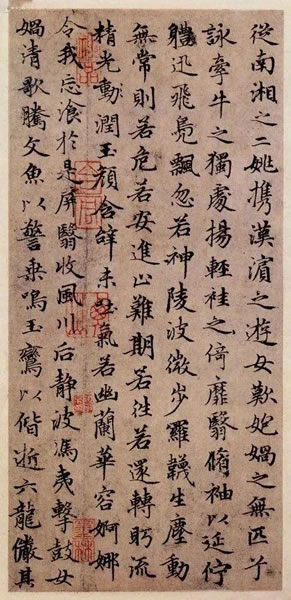 從南湘之二姚携漢濱之遊女歎媧之無匹兮
詠牽牛之獨處揚輕袿之倚靡翳脩袖以延佇
體迅飛鳧飄忽若神陵波微步羅韈生塵動
無常則若危若安進止難期若往若還轉眄流
精光動潤玉顏含辭未吐氣若幽蘭華容婀娜
令我忘飡於是屏翳收風川后靜波馮夷擊鼓女
媧清歌騰文魚以警乘鳴玉鸞以偕逝六龍儼其